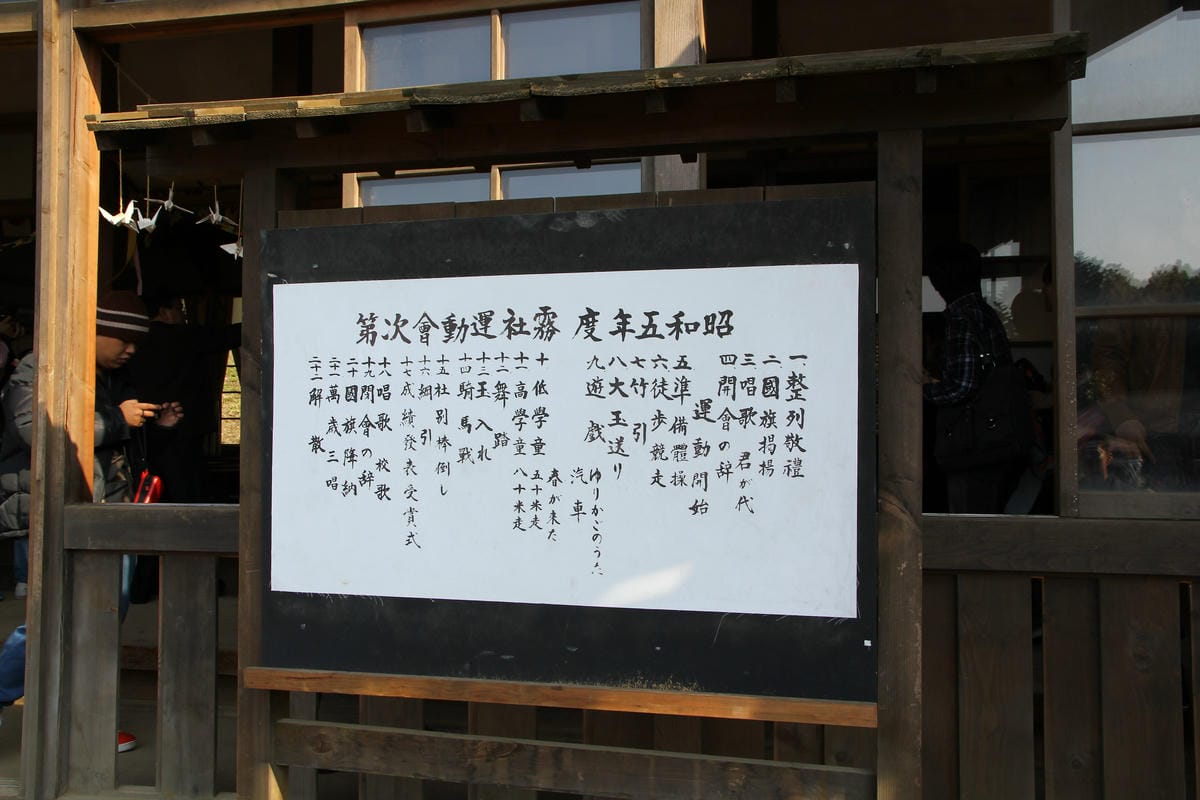 昭和五年度 霧社運動會次第
一、整列敬禮
二 國旗揭揚
三 唱歌 君が代
四 開會の辞
運動開始
五 準備體操
六 徒步競走
七 竹引
八 大玉送り
九 遊戲 ゆりかごのうた
汽車
春が来た
十 低學童 五十米走
十一 高學童 八十米走
十二 舞踏
十三 玉入れ
十四 騎馬戰
十五 社別棒倒し
十六 綱引
十七 成績發表受賞式
十八 唱歌 校歌
十九 閉會の辞
二十 國旗降納
二十一 萬歲三唱
二十二 解散